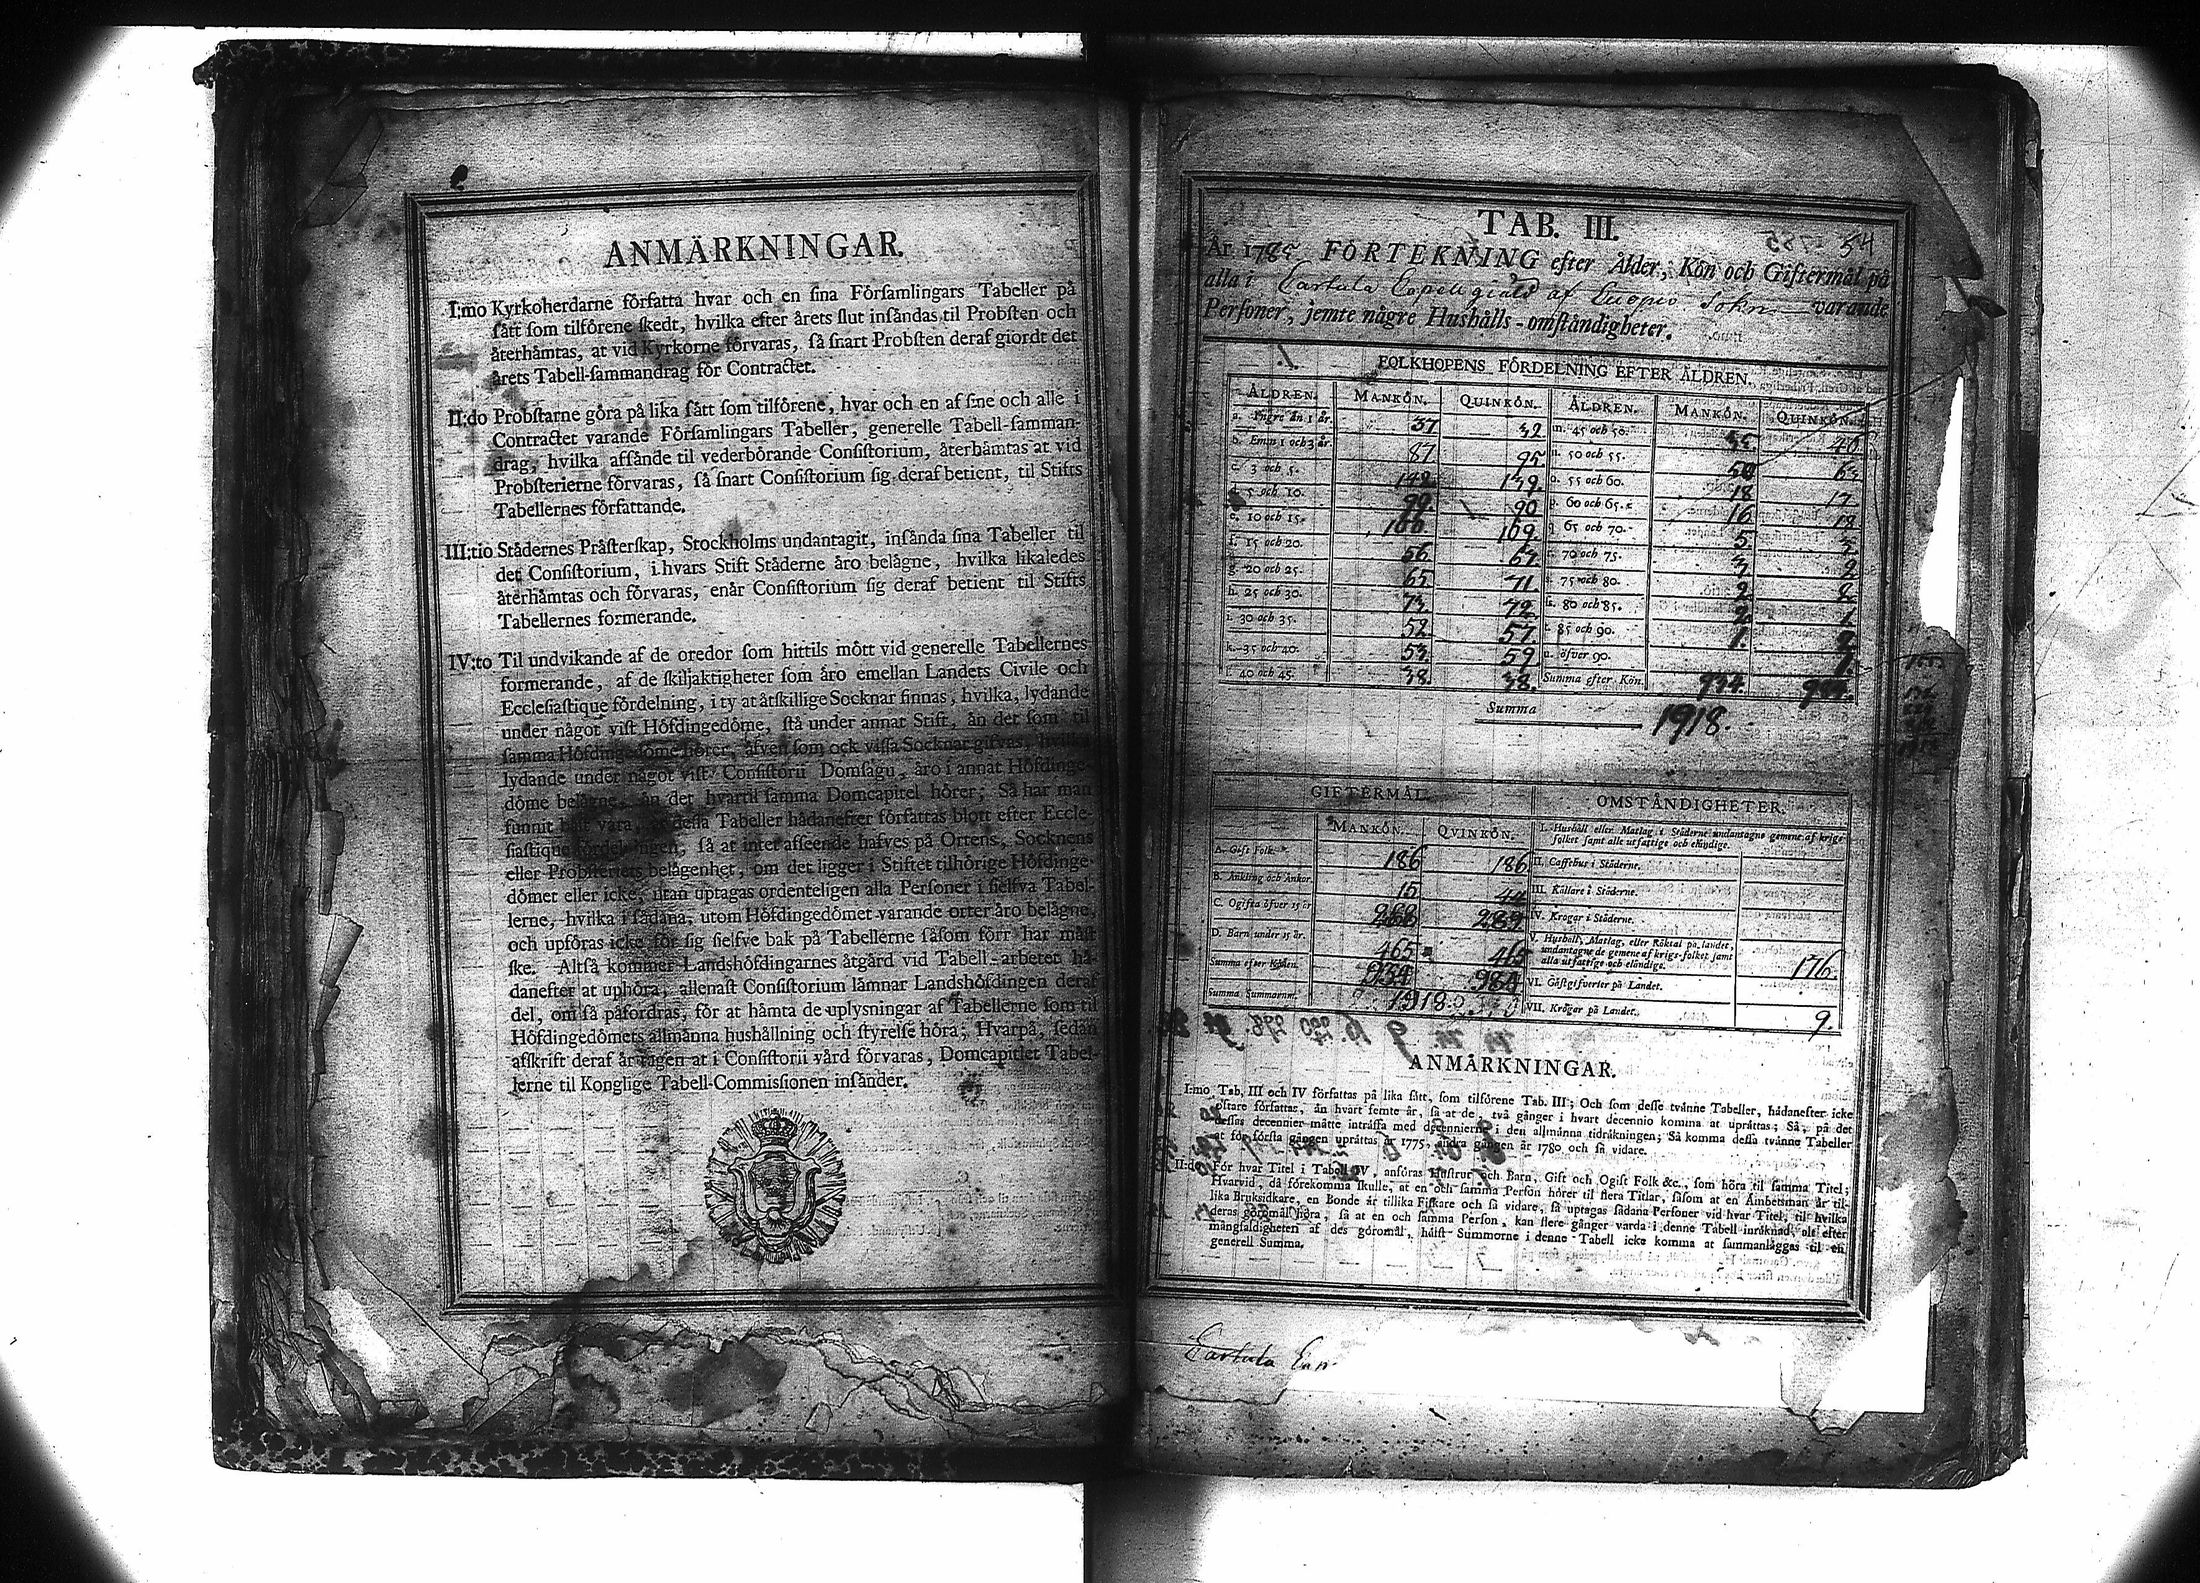 ANMÄRKNINGAR.
I:mo Kyrkoherdarne författa hvar och en sina Församlingars Tabeller på
sätt som tilförene skedt, hvilka efter årets slut insändas til Probsten och
återhämtas, at vid Kyrkorne förvaras, så snart Probsten deraf giordt det
årets Tabell-sammandrag för Contractet.
II:do Probstarne göra på lika sätt som tilförene, hvar och en af sine och alle i
Contractet varande Församlingars Tabeller, generelle Tabell-samman-
drag, hvilka afsände til vederbörande Consistorium, återhämtas at vid
Probsterierne förvaras, så snart Consistorium sig deraf betient, til Stifts
Tabellernes författande.
III:tio Städernes Prästerskap, Stockholms undantagit, insända sina Tabeller til
det Consistorium, i hvars Stift Städerne äro belägne, hvilka likaledes
återhämtas och förvaras, enär Consistorium sig deraf betient til Stifts
Tabellernes formerande.
IV:to Til undvikande af de oredor som hittils mött vid generelle Tabellernes
formerande, af de skiljaktigheter som äro emellan Landets Civile och
Ecclesiastique fördelning, i ty at åtskillige Socknar finnas, hvilka, lydande
under något vist Höfdingedöme, stå under annat Stift, än det som til
samma Höfdingedöme hörer, äfven som ock vissa Socknar gifvas, hvilka
lydande under något vist Consistorii Domsagu, äro i annat Höfdinge-
döme belägne, än det hvartil samma Domcapitel hörer; Så har man
funnit bäst vara, at dessa Tabeller hädanefter författas blott efter Eccle-
siastique fördelningen, så at intet afseende hafves på Ortens, Socknens
eller Probsteriets belägenhet, om det ligger i Stiftet tilhörige Höfdinge-
dömet eller icke, utan uptagas ordenteligen alla Personer i sielfva Tabel-
lerne, hvilka i sådana, utom Höfdingedömet varande orter äro belägne,
och upföras icke för sig sielfve bak på Tabellerne såsom förr har måst
ske. Altså kommer Landshöfdingarnes åtgärd vid Tabell-arbetet hä-
danefter at uphöra, allenast Consistorium lämnar Landshöfdingen deraf
del, om så påfordras, för at hämta de uplysningar af Tabellerne som til
Höfdingedömets allmänna hushållning och styrelse höra; Hvarpå, sedan
afskrift deraf är tagen at i Consistorii vård förvaras, Domcapitlet Tabel-
lerne til Konglige Tabell-Commissionen insänder.
TAB. III.
54
År 1785 FÖRTEKNING efter Ålder, Kön och Giftermål på
alla i Capell af Sokn varande
Personer, jemte några Hushålls-omständigheter.
FOLKHOPENS FÖRDELNING EFTER ÅLDREN.
ÅLDREN. MANKÖN. QUINKÖN. ÅLDREN. MANKÖN. QUINKÖN.
a. Yngre än 1 år. 37 32 m. 45 och 50. 40
b. Emm 1 och 3 år. 87 95 n. 50 och 55. 50 63
c. 3 och 5. 142 139 o. 55 och 60. 18 17
d. 5 och 10. 99 90 p. 60 och 65. 16 18
e. 10 och 15. 100 109 q. 65 och 70. 5
f. 15 och 20. 56 67 r. 70 och 75. 2
g. 20 och 25. 65 71 s. 75 och 80. 2 8
h. 25 och 30. 73 72 80 och 85. 2 1
i. 30 och 35. 52 57 t. 85 och 90. 1
k. 35 och 40. 53 59 u. öfver 90.
l. 40 och 45. 38 38 Summa efter Kön. 934 984
Summa 1918.
GIFTERMÅL. OMSTÄNDIGHETER.
MANKÖN. QVINKÖN.
I. Hushåll eller Matlag i Städerne undantagne gemene af krigs-
folket samt alle utfattige och eländige.
A. Gift Folk. 186 186 II. Caffehus i Städerne.
B. Änkling och Änkor. 15 44 III. Källare i Städerne.
C. Ogifta öfver 15 år 268 289 IV. Krogar i Städerne.
D. Barn under 15 år. 465 465
V. Hushåll, Matlag, eller Röktal på landet,
undantagne de gemene af krigs-folket samt
alla utfattige och eländige. 176.
Summa efter Könen. 934 984 VI. Gästgifverier på Landet.
Summa Summarum. 1918 VII. Krögar på Landet. 9.
ANMÄRKNINGAR.
I:mo Tab. III och IV författas på lika sätt, som tilförene Tab. III; Och som desse tvänne Tabeller, hädanefter icke
oftare författas, än hvart femte år, så at de, två gånger i hvart decennio komma at uprättas; Så, på det
dessas decennier måtte inträffa med decennierne i den allmänna tidräkningen; Så komma dessa tvänne Tabeller
at för första gången uprättas år 1775, andra gången år 1780 och så vidare.
II:do För hvar Titel i Tabell IV, anföras Hustrur och Barn, Gift och Ogift Folk &c., som höra til samma Titel;
Hvarvid, då förekomma skulle, at en och samma Person hörer til flera Titlar, såsom at en Ämbetsman är til-
lika Bruksidkare, en Bonde är tillika Fiskare och så vidare, så uptagas sådana Personer vid hvar Titel, til hvilka
deras göromål höra, så at en och samma Person, kan flere gånger varda i denne Tabell inräknad, alt efter
mångfaldigheten af des göromål, hälst Summorne i denne Tabell icke komma at sammanläggas til en
generell Summa.